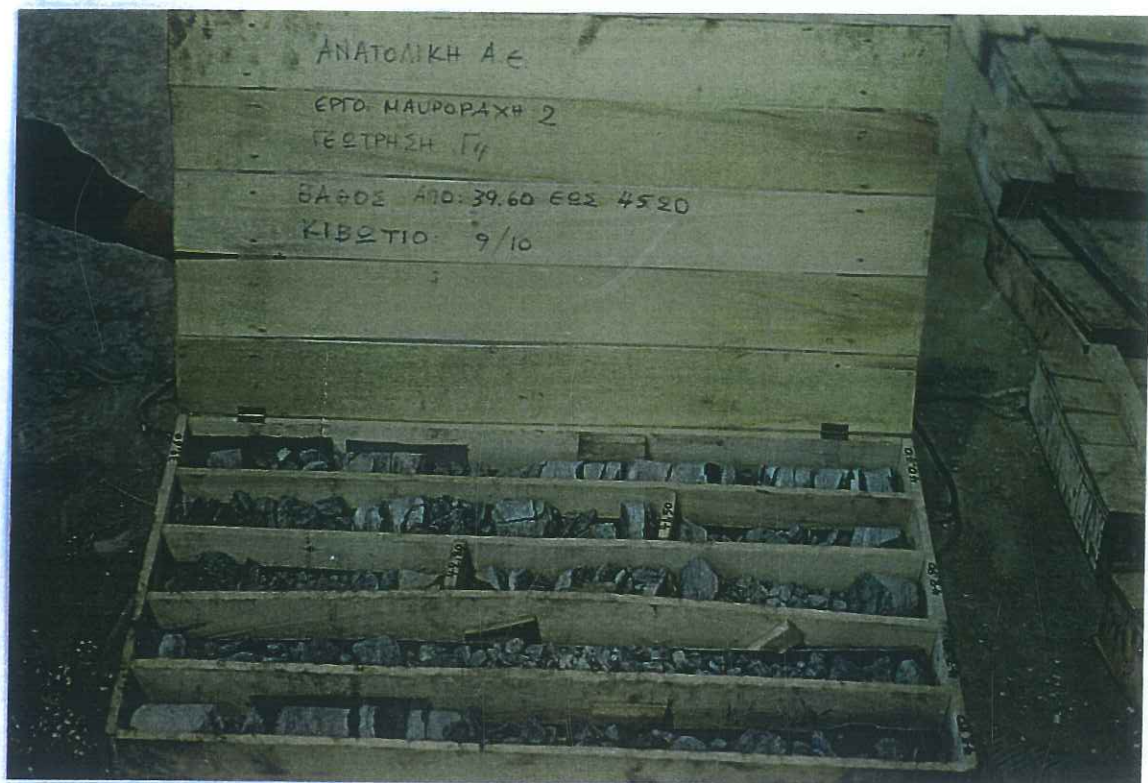 ΑΝΑΤΟΛΙΚΗ Α.Ε.
ΕΡΓΟ: ΜΑΥΡΟΡΑΧΗ 2
ΓΕΩΤΡΗΣΗ Γ4
ΒΑΘΟΣ ΑΠΟ: 39.60 ΕΩΣ 45.20
ΚΙΒΩΤΙΟ: 9/10
41.50